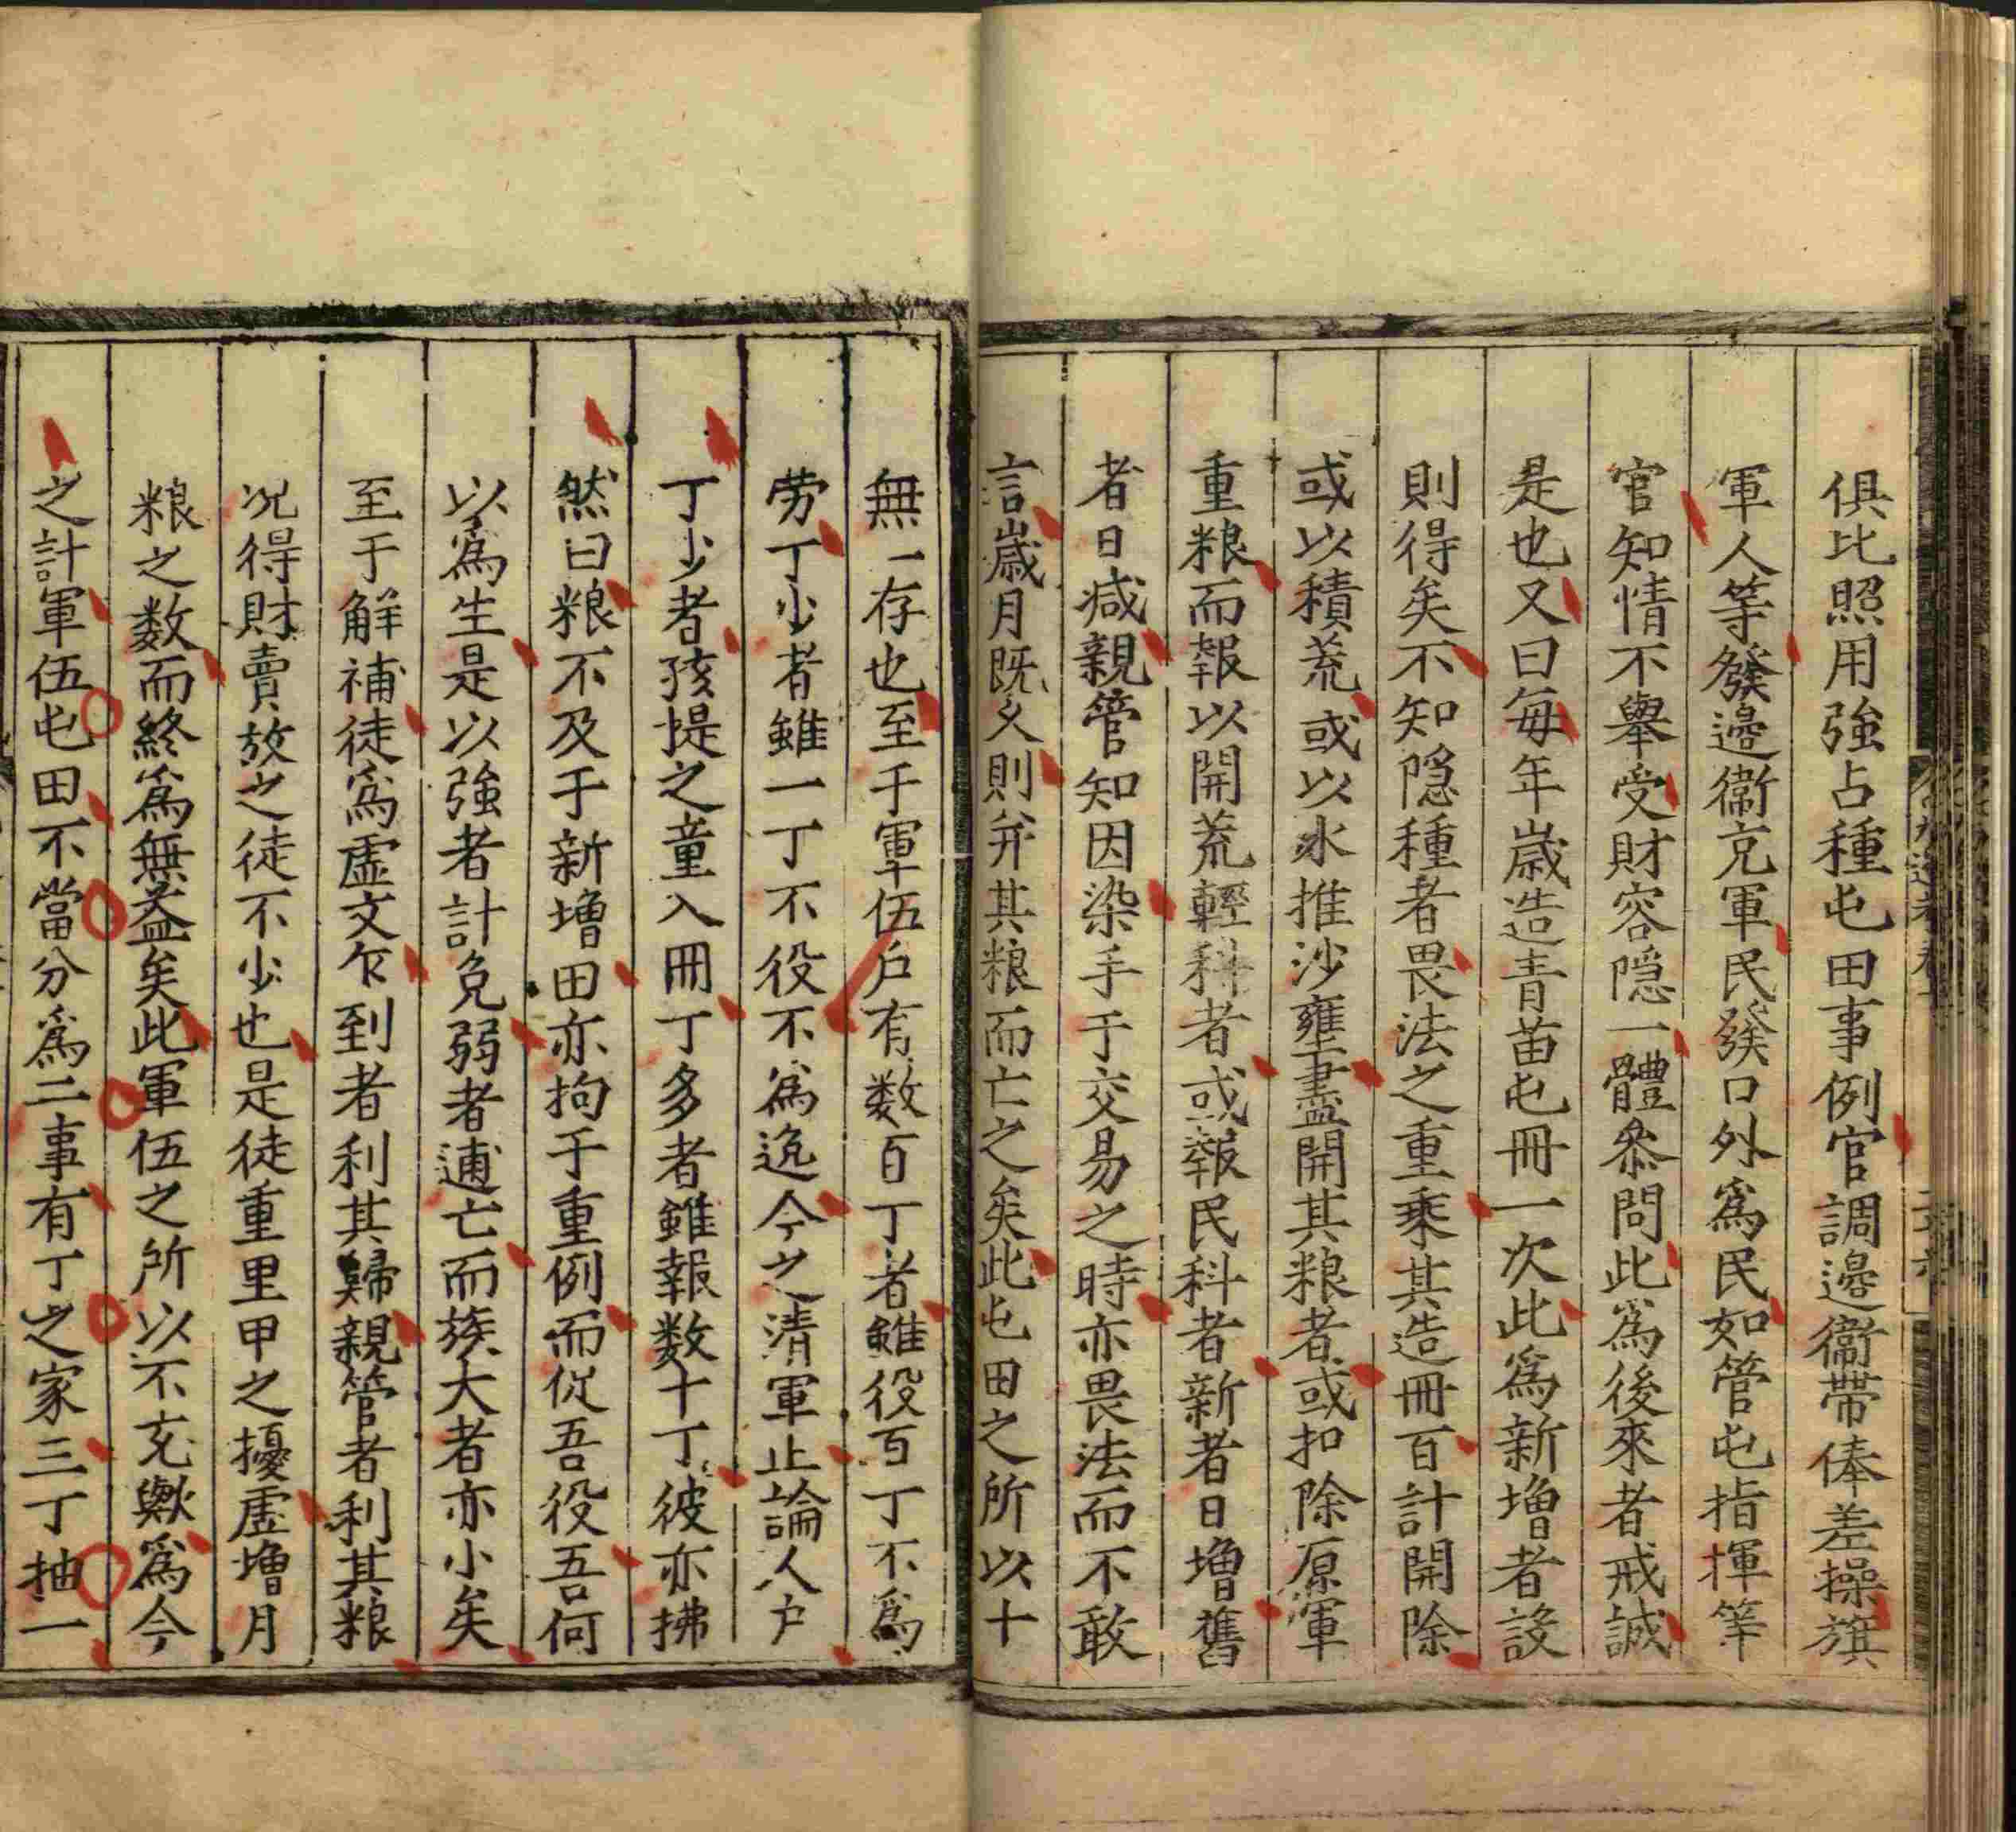 俱比照用強占種屯田事例官調邊衞帶俸差操旗
軍人等發邊衞充軍民發口外爲民如管屯指揮等
官知情不舉受財容隠一體叅問此爲後來者戒誠
是也又曰每年歲造青苗屯冊一次此爲新增者設
則得矣不知隠種者畏法之重乘其造冊百計開除
或以積荒或以水推沙壅盡開其粮者或扣除原軍
重粮而報以開荒輕科者或報民科者新者日増舊
者日减親管知因染手于交易之時亦畏法而不敢
言歲月既久則弃其粮而亡之矣此屯田之所以十
無一存也至于軍伍户有数百丁者雖役百丁不爲
劳丁少者雖一丁不役不爲逸今之清軍止論人户
丁少者孩提之童入冊丁多者雖報数十丁彼亦拂
然曰粮不及于新増田亦拘于重例而從吾役吾何
以爲生是以強者計免弱者逋亡而族大者亦小矣
至于解補徒爲虛文乍到者利其歸親管者利其粮
况得財賣放之徒不少也是徒重里甲之擾虛增月
粮之数而終爲無益矣此軍伍之所以不充歟爲今
之計軍伍屯田不當分爲二事有丁之家三丁抽一